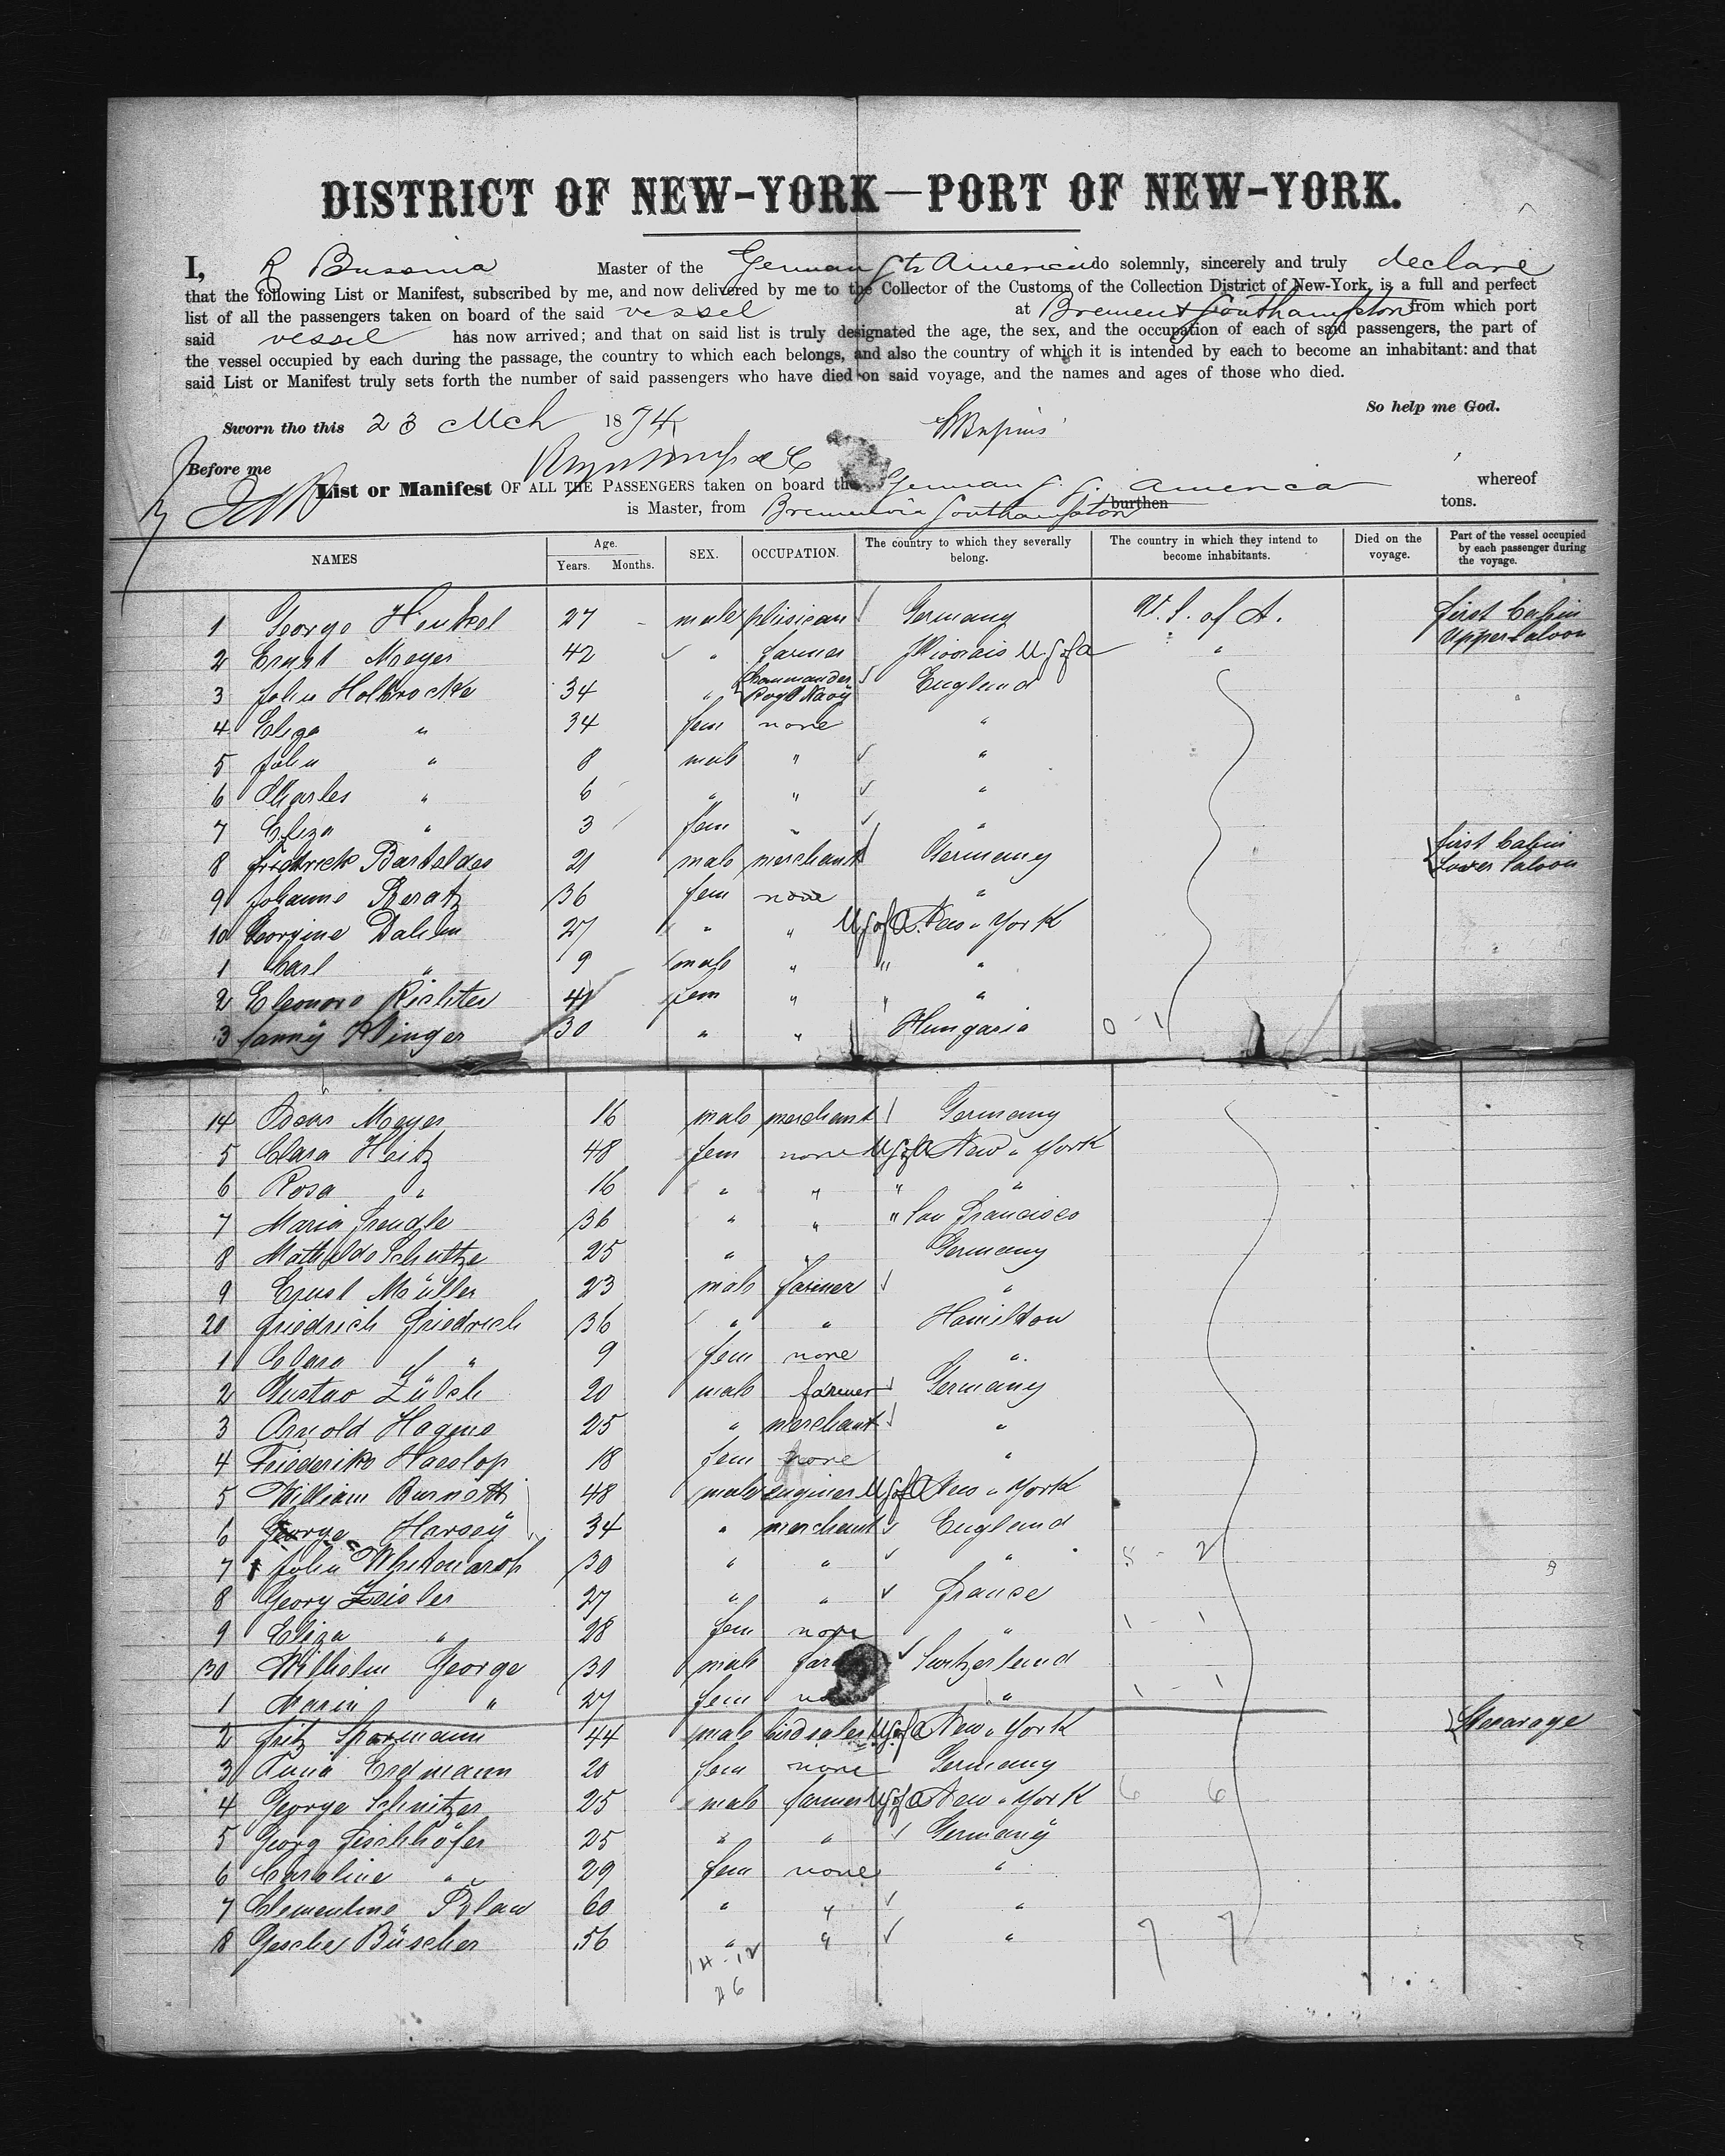 DISTRICT OF NEW-YORK—PORT OF NEW-YORK.
I, R Bussius Master of the German Str America do solemnly, sincerely and truly declare
that the following List or Manifest, subscribed by me, and now delivered by me to the Collector of the Customs of the Collection District of New-York, is a full and perfect
list of all the passengers taken on board of the said vessel at Bremen & Southampton from which port
said vessel has now arrived; and that on said list is truly designated the age, the sex, and the occupation of each of said passengers, the part of
the vessel occupied by each during the passage, the country to which each belongs, and also the country of which it is intended by each to become an inhabitant: and that
said List or Manifest truly sets forth the number of said passengers who have died on said voyage, and the names and ages of those who died.
So help me God.
Sworn tho this 23 Mch 1874
Before me
List or Manifest OF ALL THE PASSENGERS taken on board the German S. S. America whereof
is Master, from Bremen via Southampton burthen tons.
NAMES Age. Years. Months. SEX. OCCUPATION. The country to which they severally belong. The country in which they intend to become inhabitants. Died on the voyage. Part of the vessel occupied by each passenger during the voyage.
1 George Henkel 27 male phisician Germany U. S. of A. first Cabin Upper Saloon
2 Ernst Meyer 42 " farmer U S of A "
3 John Holbrocke 34 " Commander Royl Navy England
4 Eliza " 34 fem none "
5 John " 8 male " "
6 Charles " 6 " " "
7 Eliza " 3 fem " "
8 friedrick Barteldes 21 male merchant Germany first Cabin Lower Saloon
9 Johanne Beratz 36 fem none "
10 Georgine Dahlem 27 " " U S of A New York
1 Carl " 9 male " " "
2 Eleonore Richter 41 fem " " "
3 fanny Klinger 30 " " Hungaria 0 - 1
14 Oscar Meyer 16 male merchant Germany
5 Clara Heitz 48 fem none U S of A New York
6 Rosa " 16 " " " "
7 Maria 36 " " " San Francisco
8 Mathilde Schultze 25 " " Germany
9 Ernst Müller 23 male farmer "
20 friedrich friedrich 36 " " Hamilton
1 Clara " 9 fem none "
2 Gustav Zülch 20 male farmer Germany
3 Arnold Hagens 25 " merchant "
4 Friederike Haeslop 18 fem none "
5 William Burnett 48 male enginer U S of A New York
6 George Harsey 34 " merchant England
7 John Whitmarsh 30 " " " 5 - 2
8 Georg Zeisler 27 " " France
9 Eliza " 28 fem none " 1 - 1
30 Wilhelm George 31 male Switzerland
1 Marin " 27 fem " 1 - 1
2 fritz Sparmann 44 male U S of A New York Stearage
3 Anna Erdmann 20 fem none Germany
4 George Schnitzer 25 male farmer U S of A New York 6 6
5 Georg fischhöfer 25 " " Germany
6 Caroline " 29 fem none "
7 Clementine Blau 60 " " "
8 Gesche Büscher 56 " " " 7 7
14 - 12
26